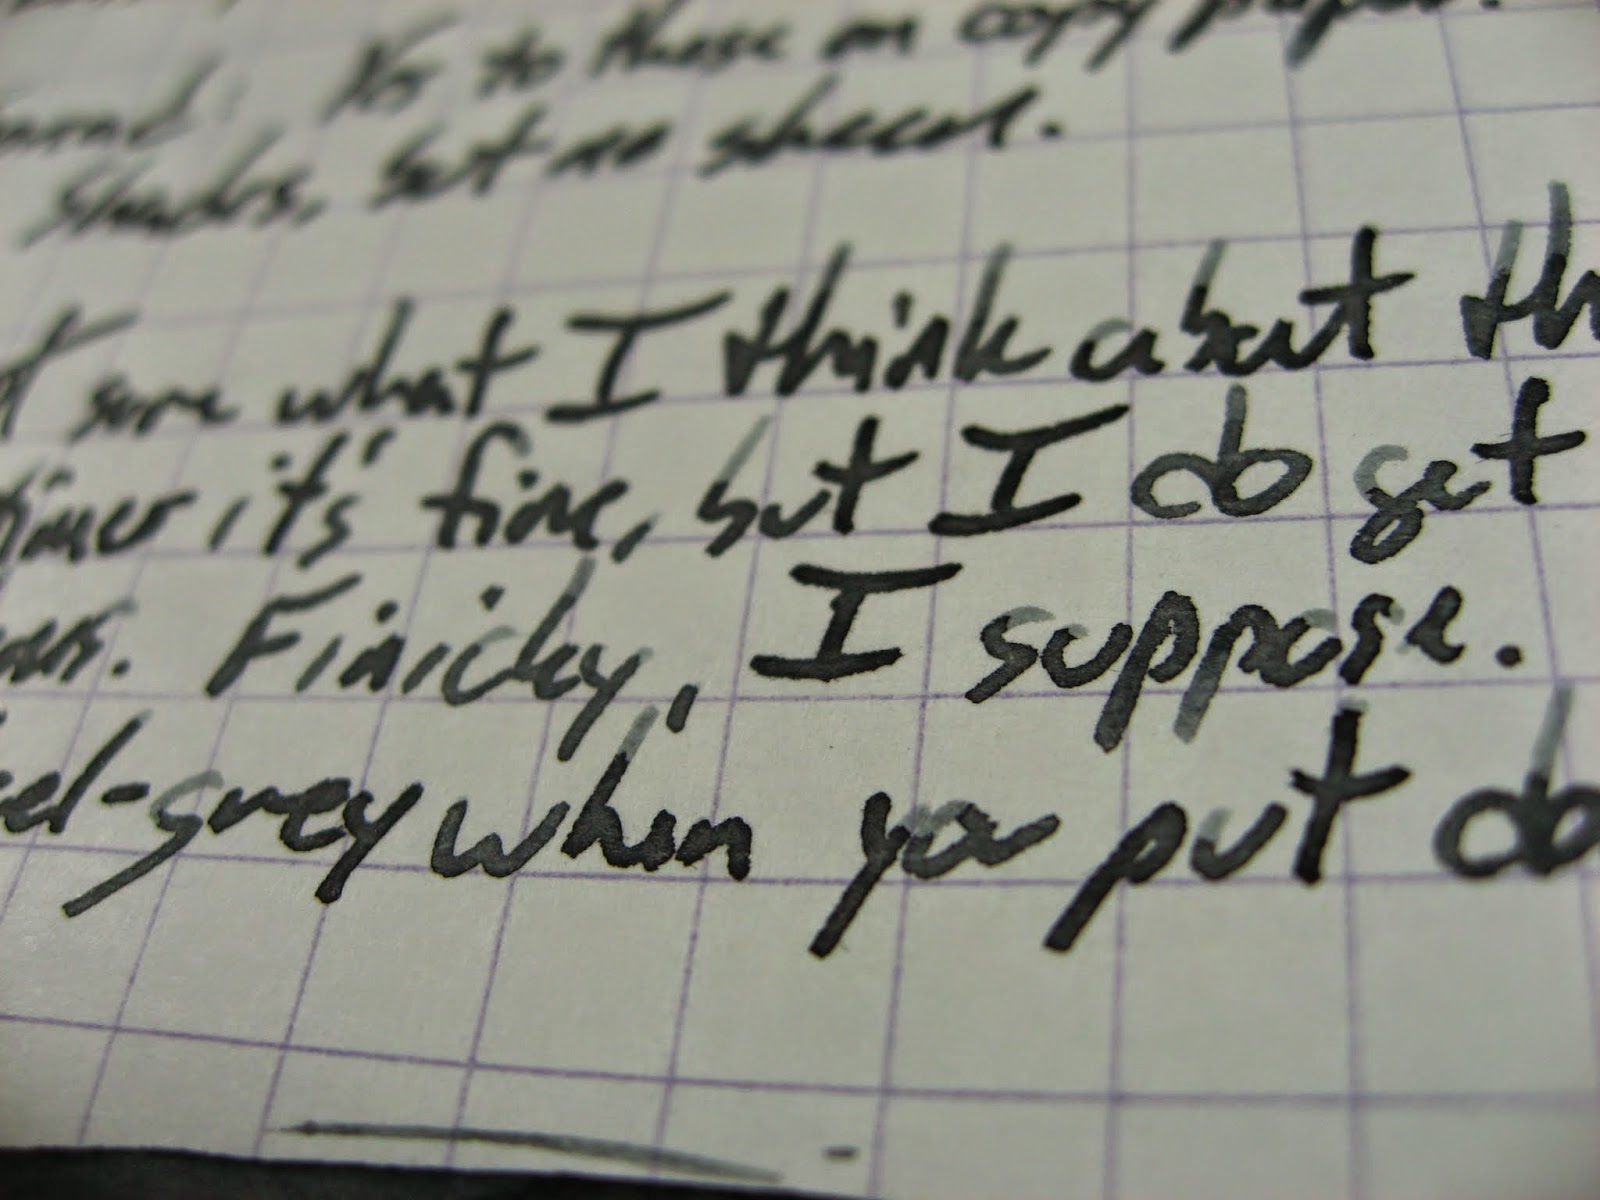 Yes to these on copy paper.
Shades, but no sheen.
sure what I think about th
it's fine, but I do get
Finicky, I suppose.
el-grey when you put do